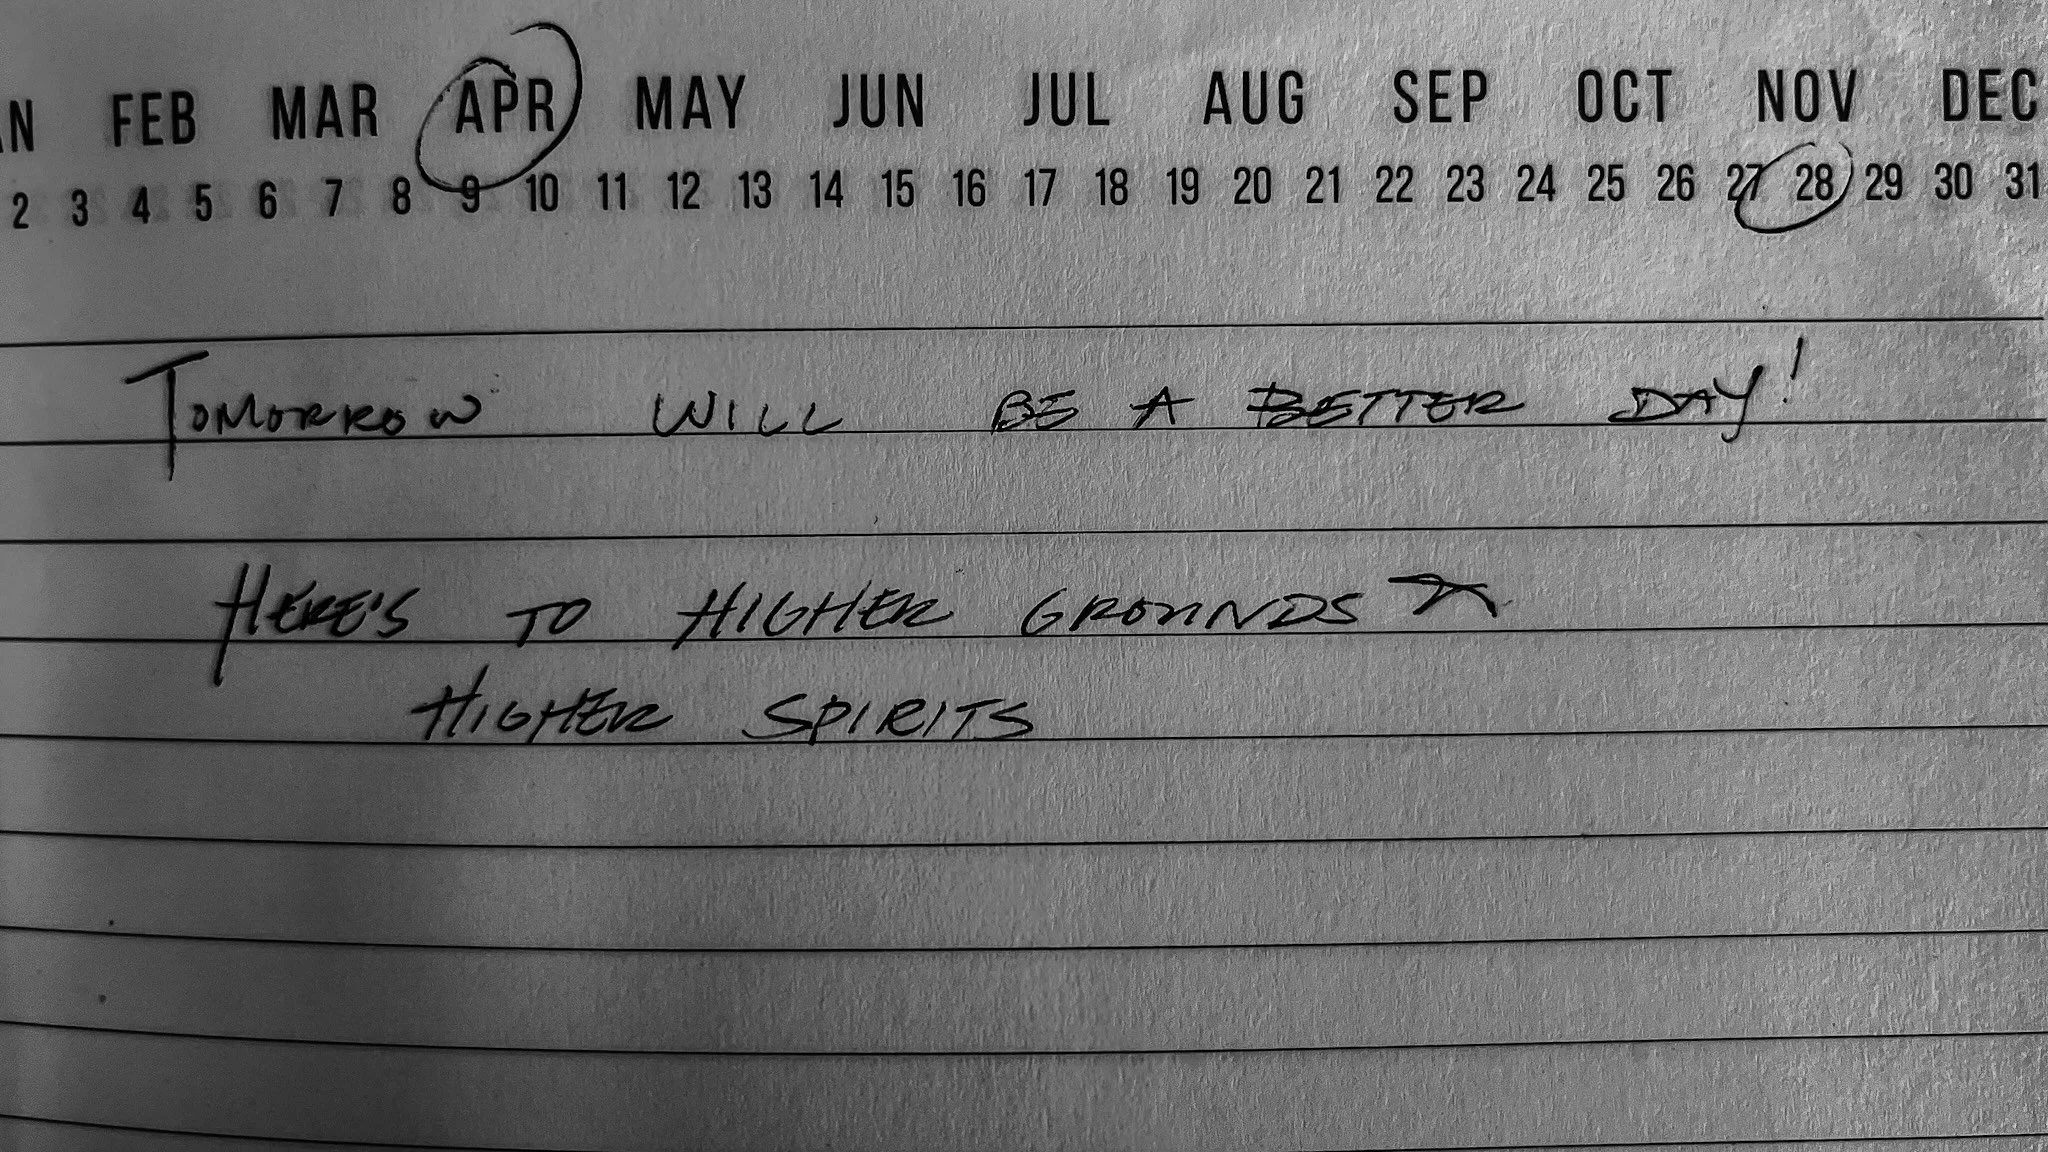 FEB MAR APR MAY JUN JUL AUG SEP OCT NOV DEC
2 3 4 5 6 7 8 9 10 11 12 13 14 15 16 17 18 19 20 21 22 23 24 25 26 27 28 29 30 31
TOMORROW WILL BE A BETTER DAY!
HERE'S TO HIGHER GROUNDS
HIGHER SPIRITS